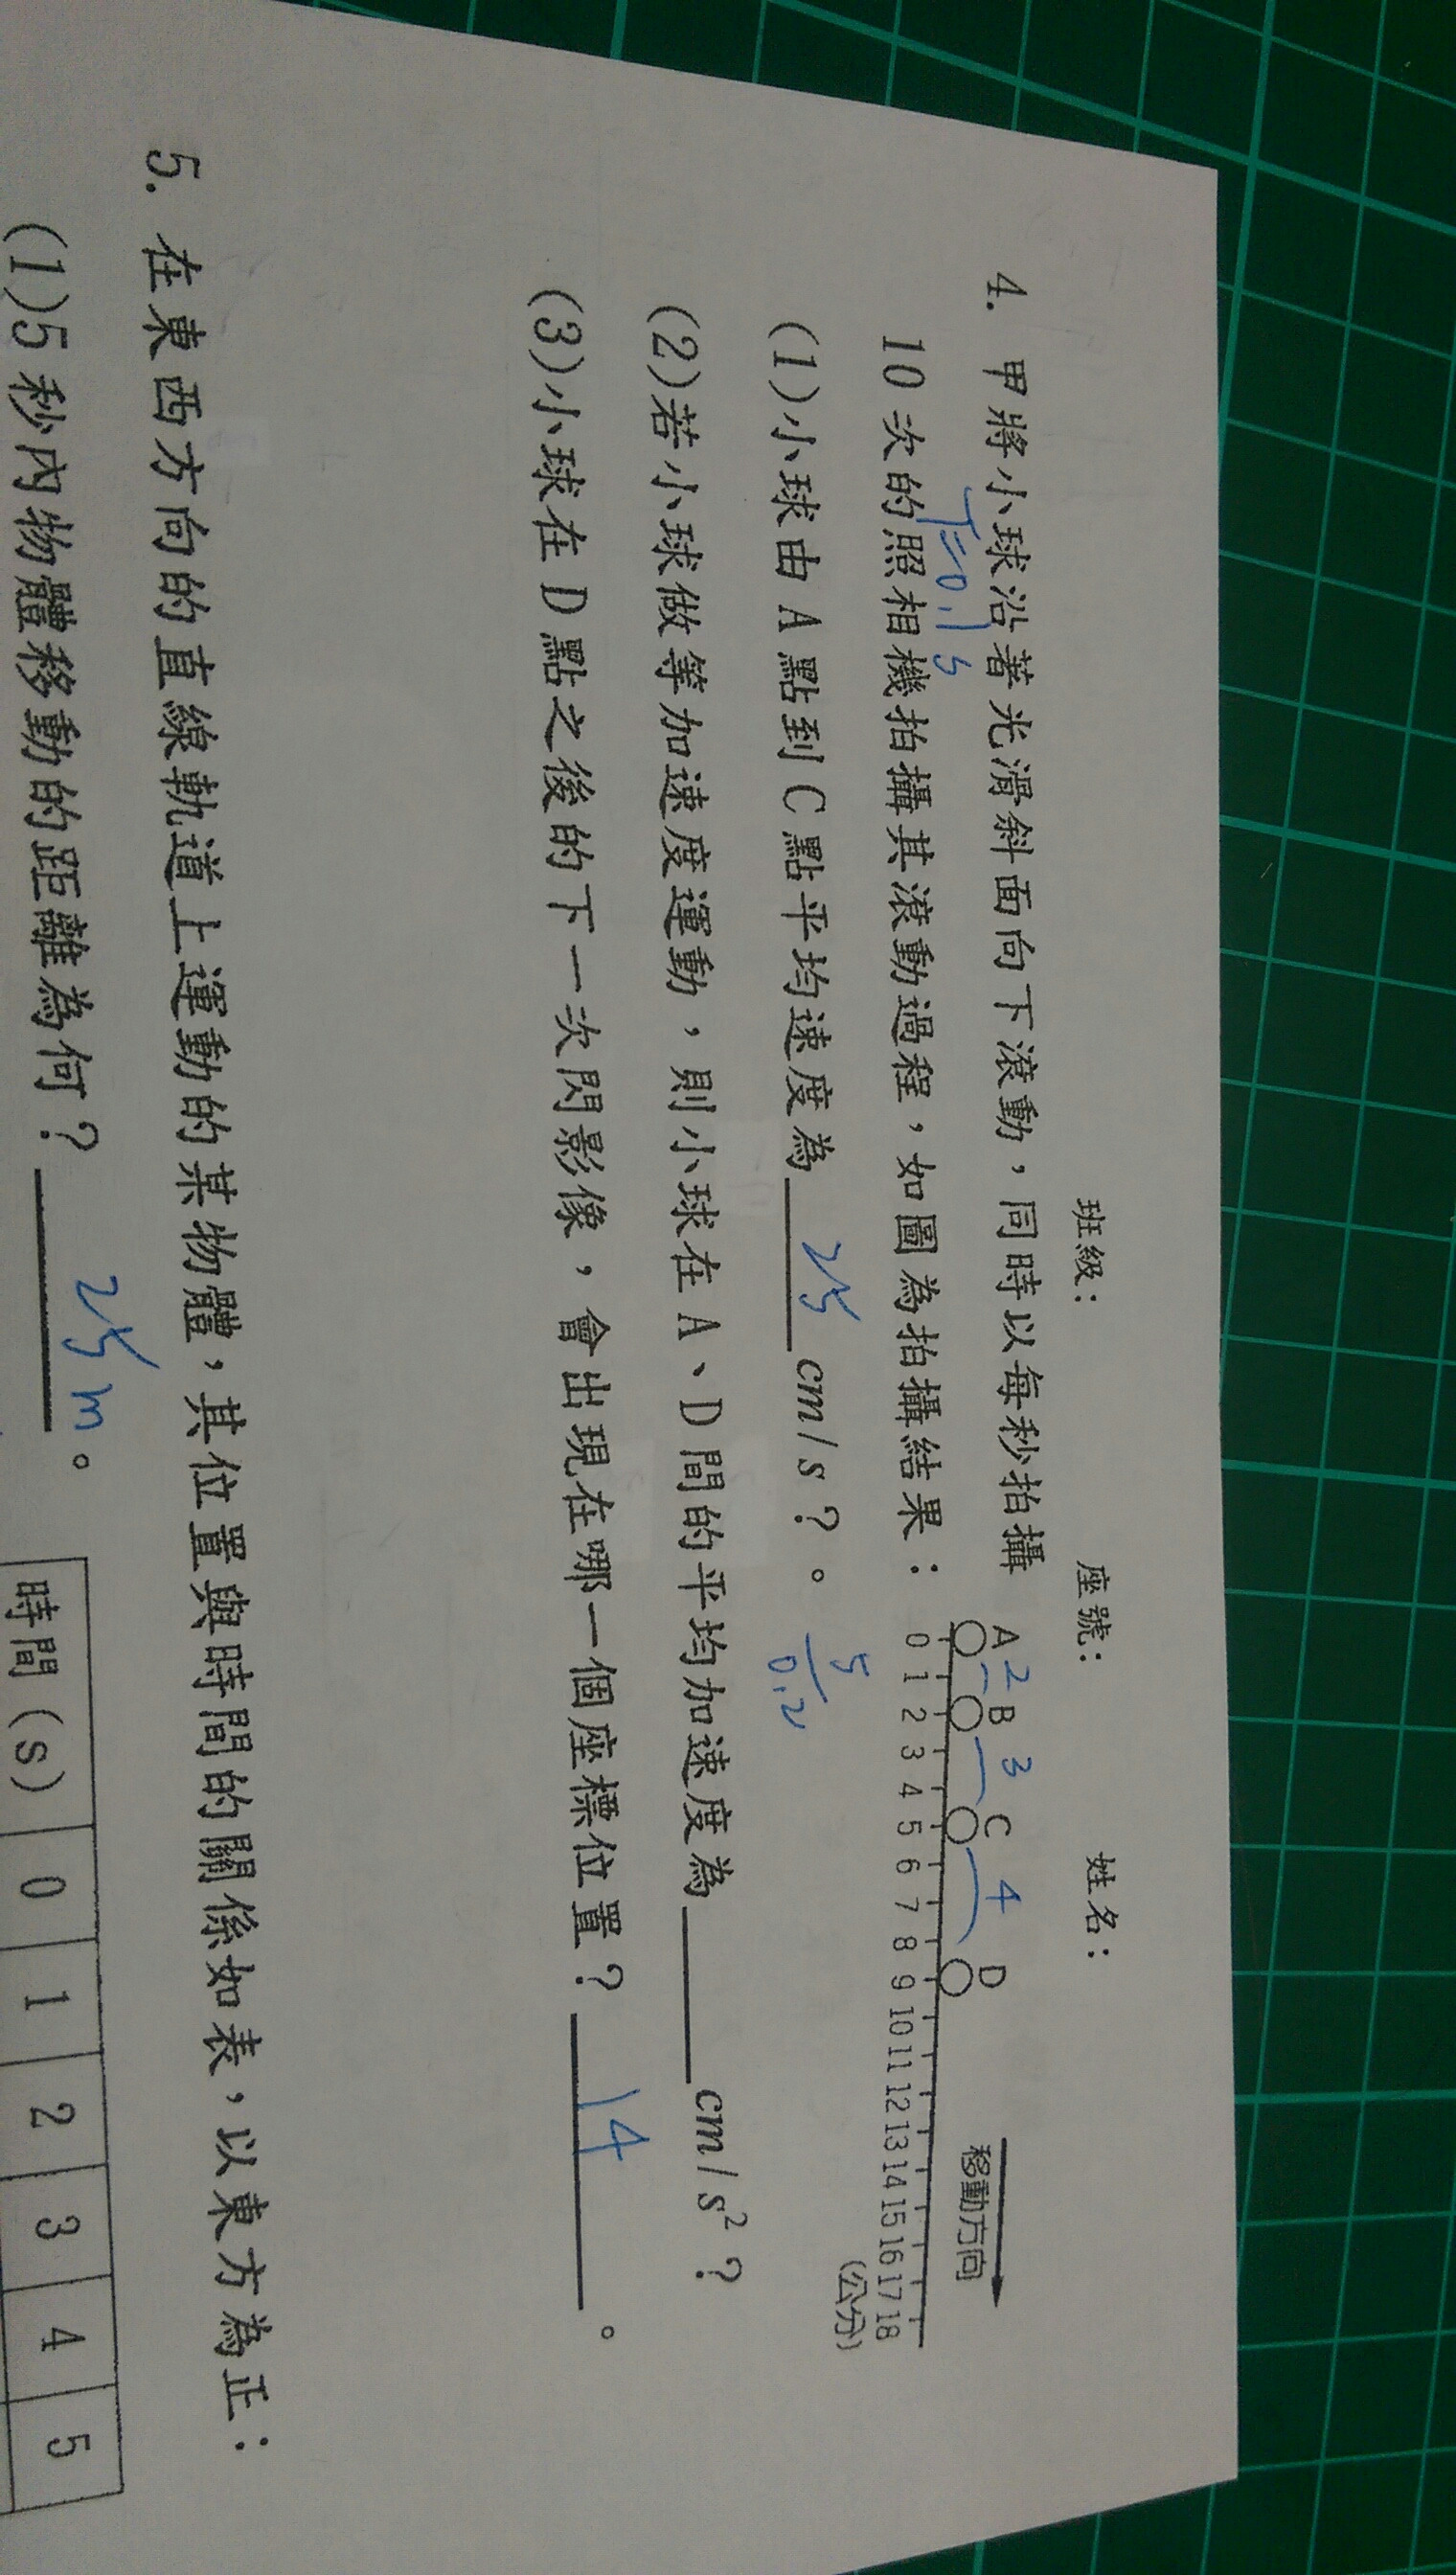 班級： 座號： 姓名：
4. 甲將小球沿著光滑斜面向下滾動，同時以每秒拍攝
T=0.1s
10 次的照相機拍攝其滾動過程，如圖為拍攝結果：
A 2 B 3 C 4 D
移動方向
0 1 2 3 4 5 6 7 8 9 10 11 12 13 14 15 16 17 18
(公分)
(1)小球由 A 點到 C 點平均速度為 25 cm/s？。 5/0.2
(2)若小球做等加速度運動，則小球在 A、D 間的平均加速度為____cm/s²？
(3)小球在 D 點之後的下一次閃影像，會出現在哪一個座標位置？ 14 。
5. 在東西方向的直線軌道上運動的某物體，其位置與時間的關係如表，以東方為正：
(1)5 秒內物體移動的距離為何？ 25m 。
時間(s) 0 1 2 3 4 5